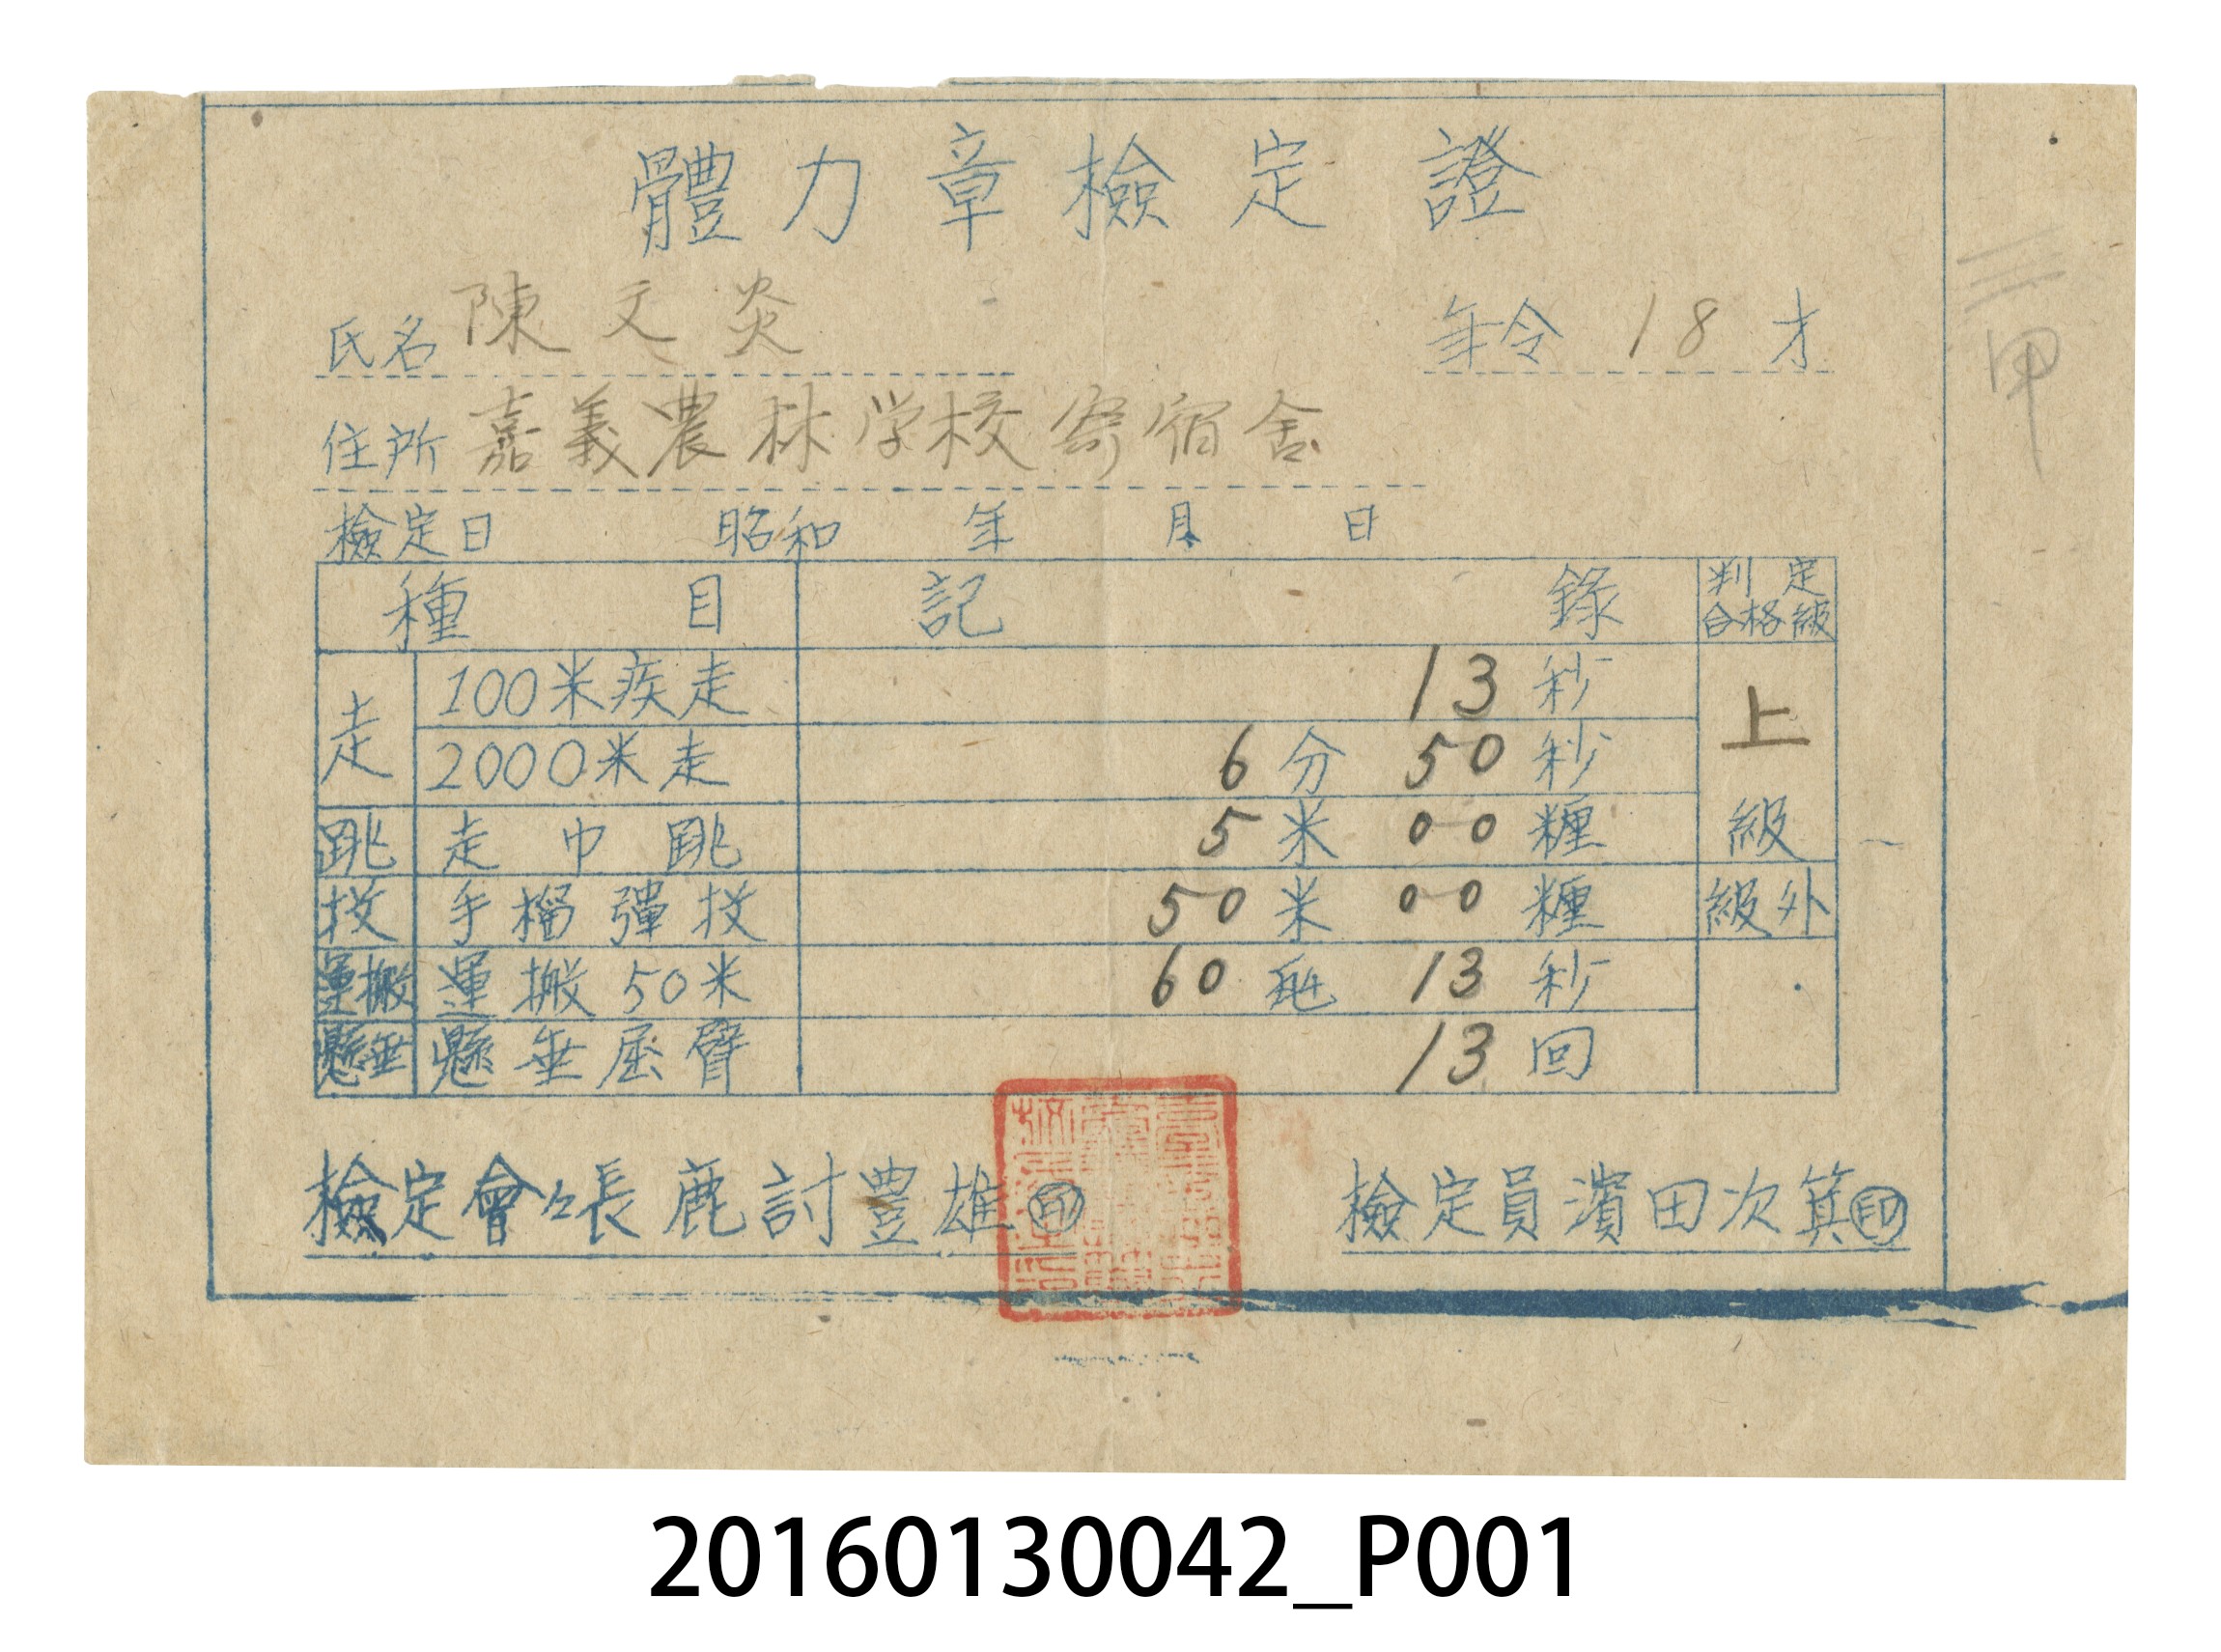 體力章檢定證
氏名 陳文炎 年令 18才
三甲
住所 嘉義農林学校寄宿舍
檢定日 昭和 年 月 日
種目 記錄 判定合格級
走 100米疾走 13秒 上級
2000米走 6分50秒
跳 走巾跳 5米00糎
投 手榴彈投 50米00糎 級外
運搬 運搬50米 60瓩 13秒
懸垂 懸垂屈臂 13回
檢定會々長鹿討豊雄㊞ 檢定員濱田次箕㊞
20160130042_P001